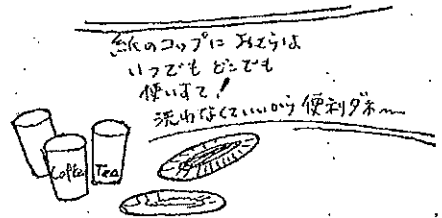 紙のコップに おさらは
いつでも どこでも
使いすて！
洗わなくていいから 便利ダネ〜
Coffee Tea